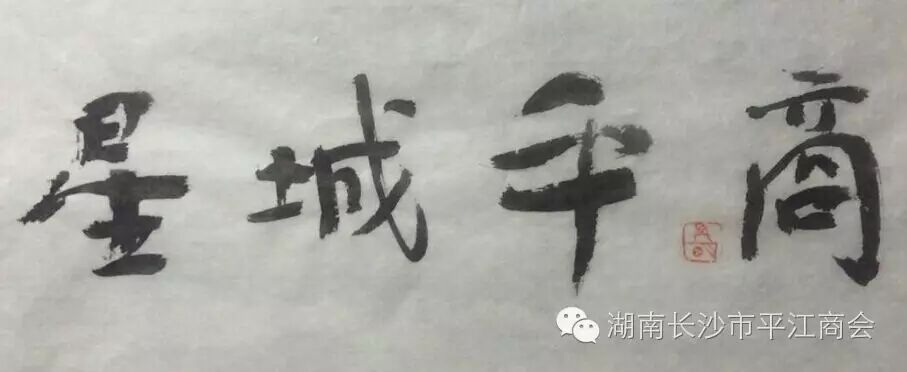 星城平商
湖南长沙市平江商会